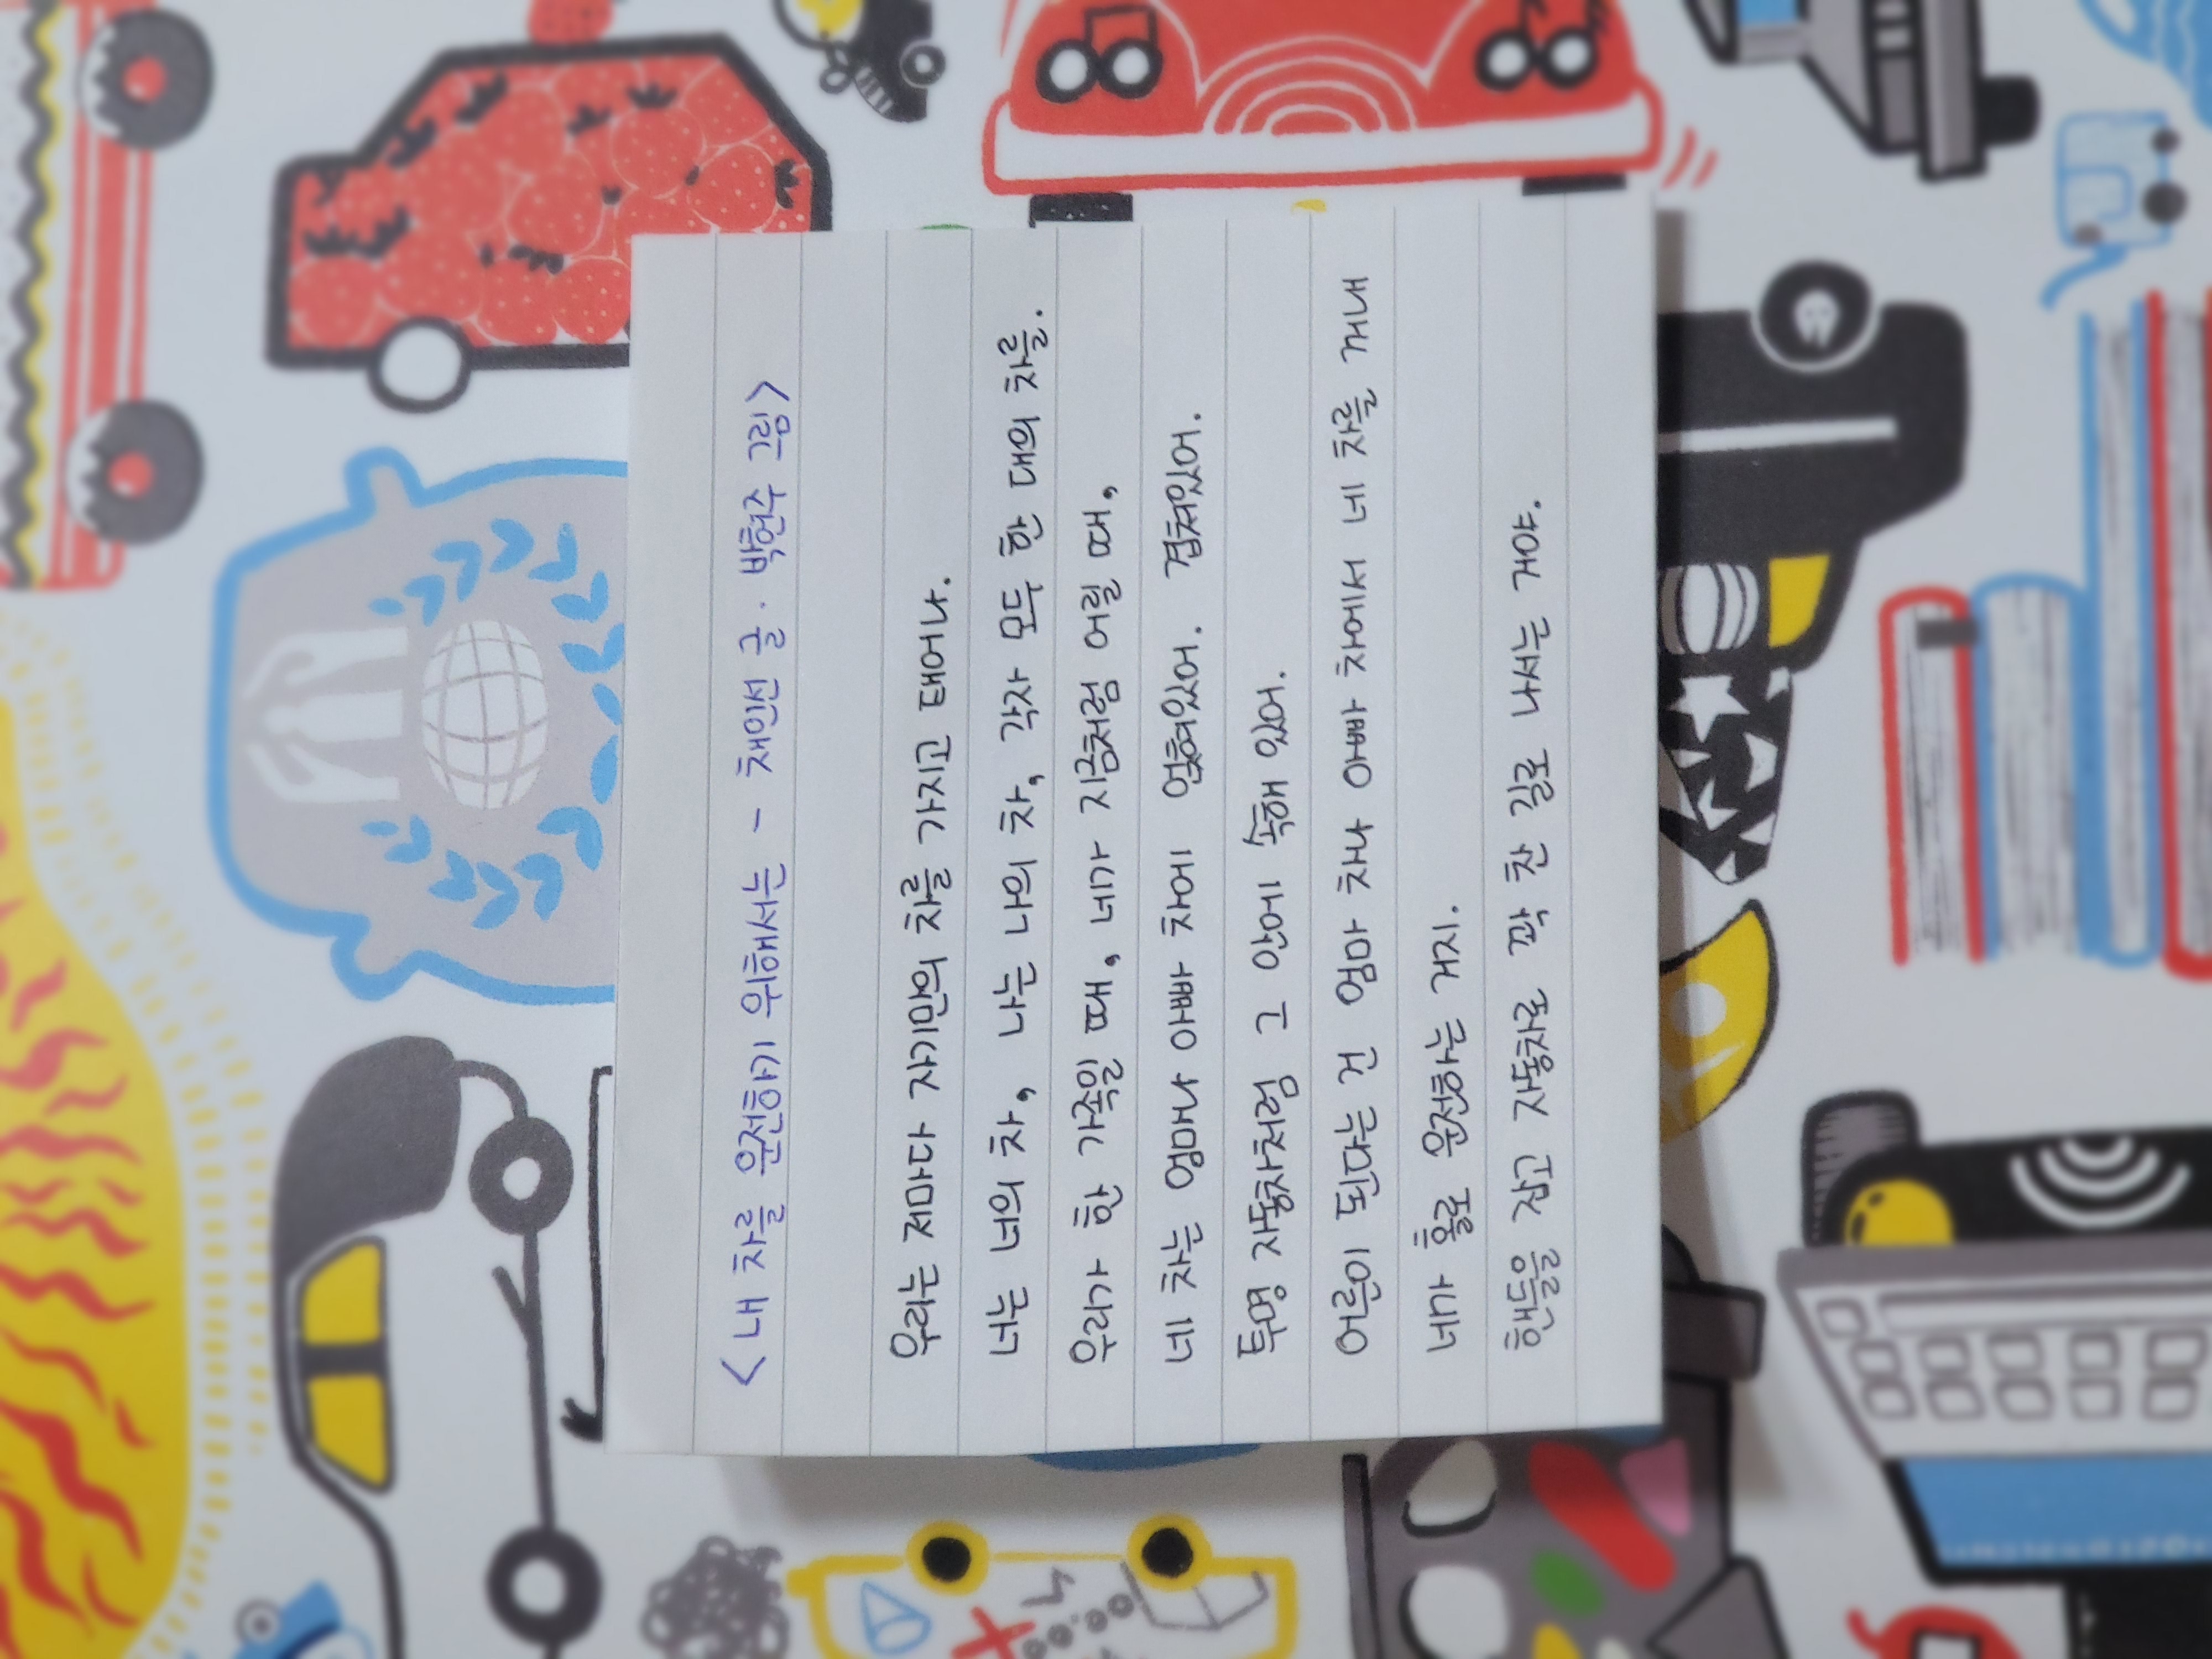 <내 차를 운전하기 위해서는 - 채인선 글. 박현주 그림>
우리는 저마다 자기만의 차를 가지고 태어나.
너는 너의 차, 나는 나의 차, 각자 모두 한 대의 차를.
우리가 한 가족일 때, 네가 지금처럼 어릴 때,
네 차는 엄마나 아빠 차에 얹혀있어. 겹쳐있어.
투명 자동차처럼 그 안에 속해 있어.
어른이 된다는 건 엄마 차나 아빠 차에서 네 차를 꺼내
네가 홀로 운전하는 거지.
핸들을 잡고 자동차로 꽉 찬 길로 나서는 거야.